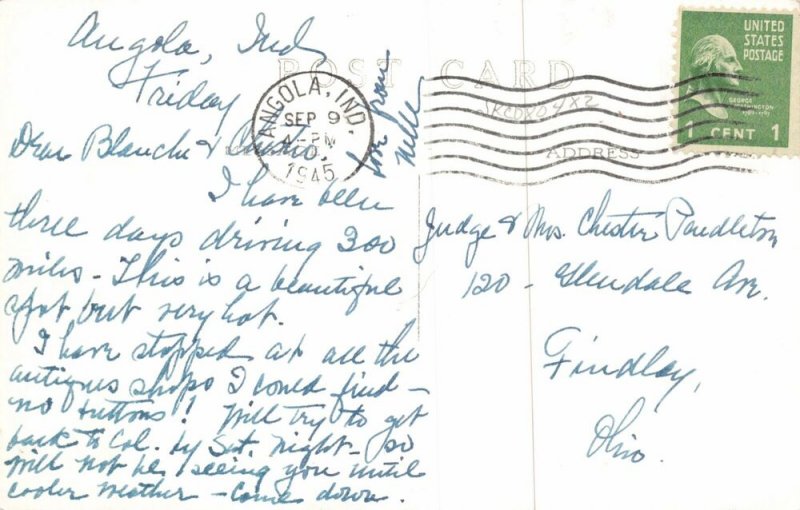 Angola, Ind
Friday
Dear Blanche &
I have been
three days driving 300
miles - This is a beautiful
spot but very hot.
I have stopped at all the
antiques shops I could find -
no buttons! Will try to get
back to Col. by Sat. night - so
will not be seeing you until
cooler weather - Come down.
love from
Nelle
POST CARD
ANGOLA, IND.
SEP 9
PM
1945
UNITED
STATES
POSTAGE
GEORGE
WASHINGTON
1789-1797
1 CENT 1
ADDRESS
Judge & Mrs. Chester Pendleton
120 - Glendale Ave.
Findlay,
Ohio.